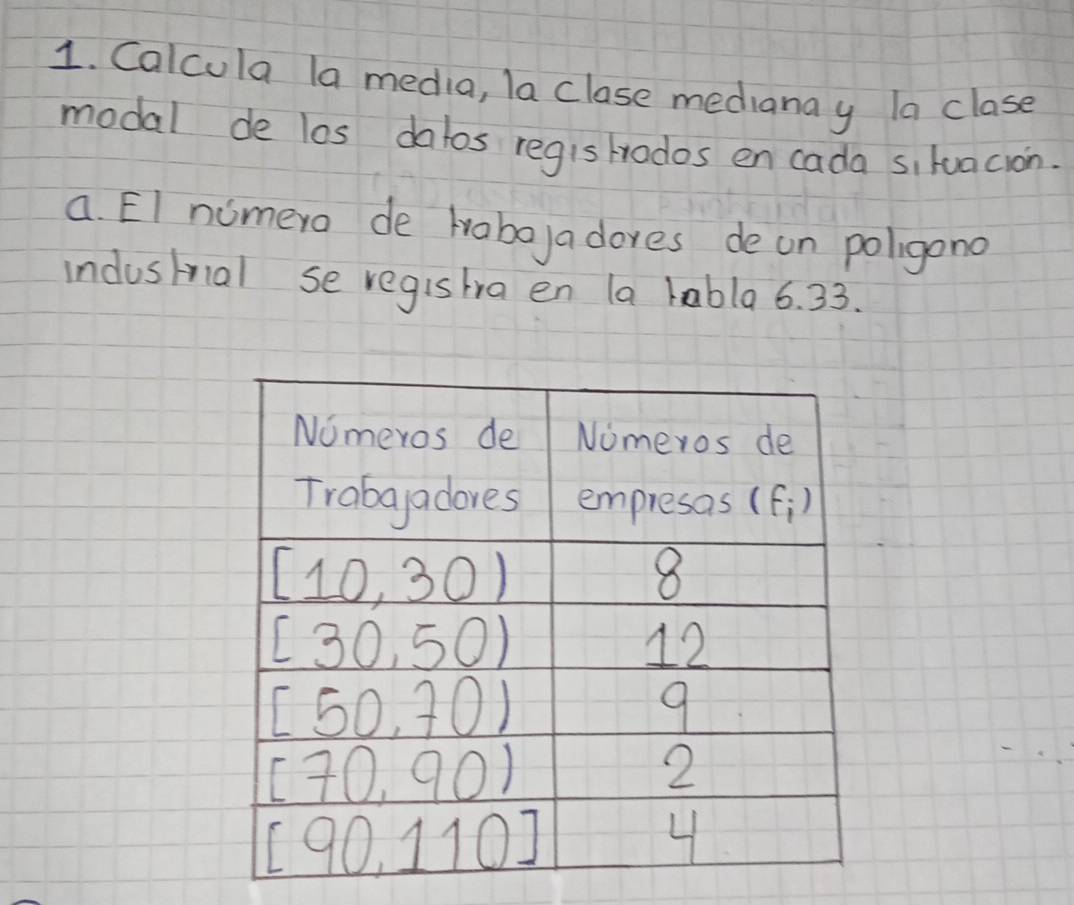 1. Calcula la media, la clase mediana y la clase
modal de los datos registrados en cada situación.
a. El número de trabajadores de un poligono
industrial se registra en la tabla 6.33.
Números de Trabajadores | Números de empresas (fi)
[10,30) 8
[30,50) 12
[50,70) 9
[70,90) 2
[90,110] 4